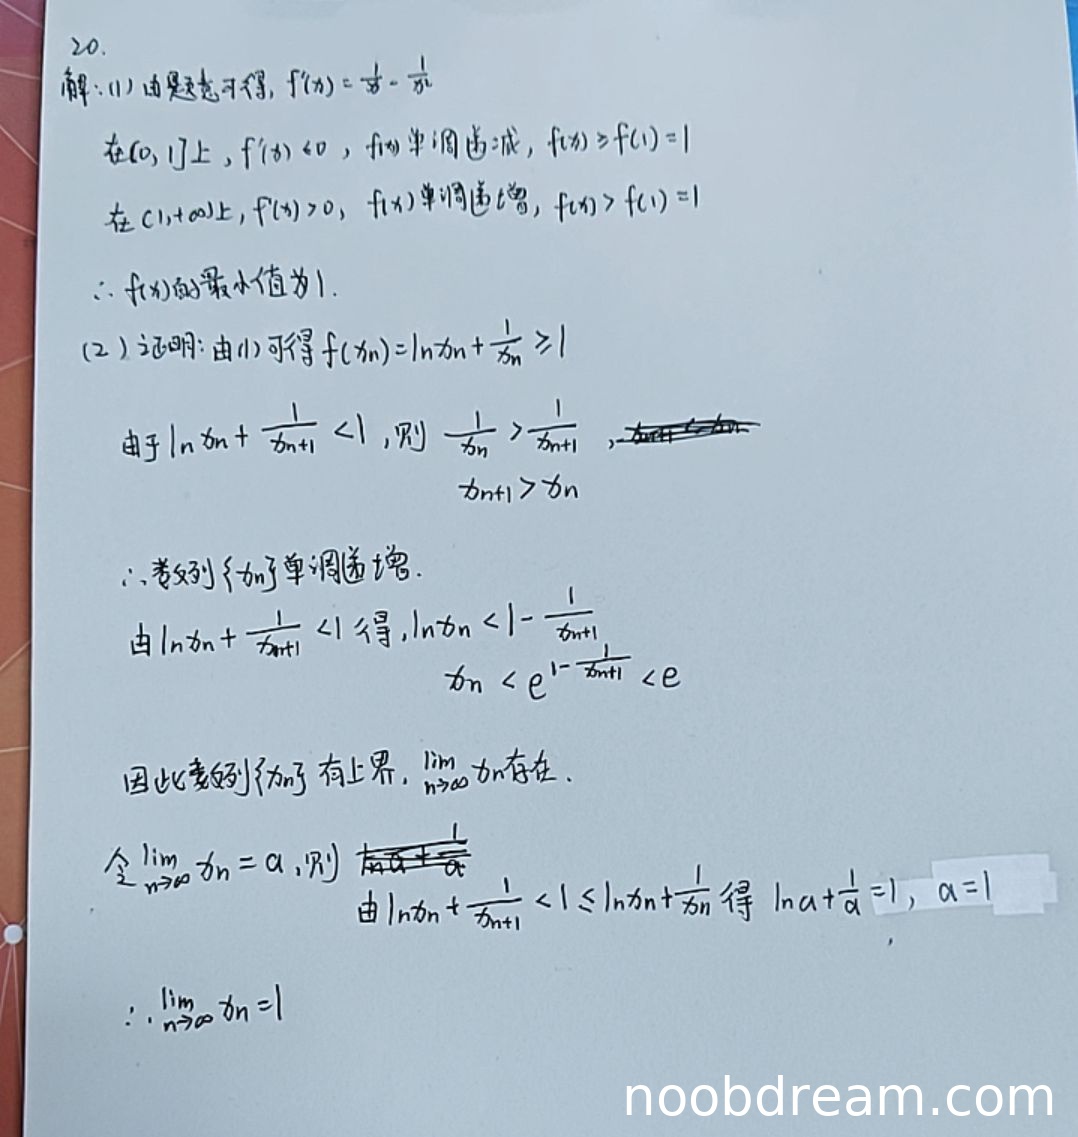 20.
解:(1)由题意可得, f'(x)=1/x-1/x²
在(0,1]上, f'(x)<0, f(x)单调递减, f(x)≥f(1)=1
在(1,+∞)上, f'(x)>0, f(x)单调递增, f(x)>f(1)=1
∴f(x)的最小值为1.
(2)证明:由(1)可得f(xn)=lnxn+1/xn≥1
由于lnxn+1/xn+1<1,则 1/xn>1/xn+1,
xn+1>xn
∴数列{xn}单调递增.
由lnxn+1/xn+1<1得,lnxn<1-1/xn+1
xn<e^(1-1/xn+1)<e
因此数列{xn}有上界, lim n→∞ xn存在.
令lim n→∞ xn=a,则
由lnxn+1/xn+1<1≤lnxn+1/xn得 lna+1/a=1, a=1
∴lim n→∞ xn=1
noobdream.com